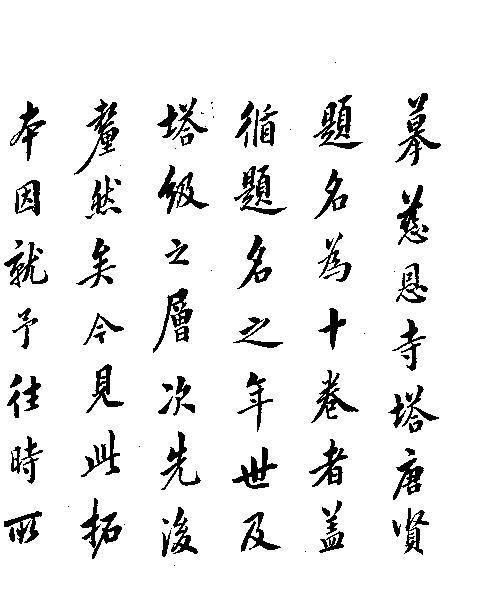 摹慈恩寺塔唐贤
題名為十卷者盖
循題名之年世及
塔级之層次先後
釐然矣今見此拓
本因就予往時所